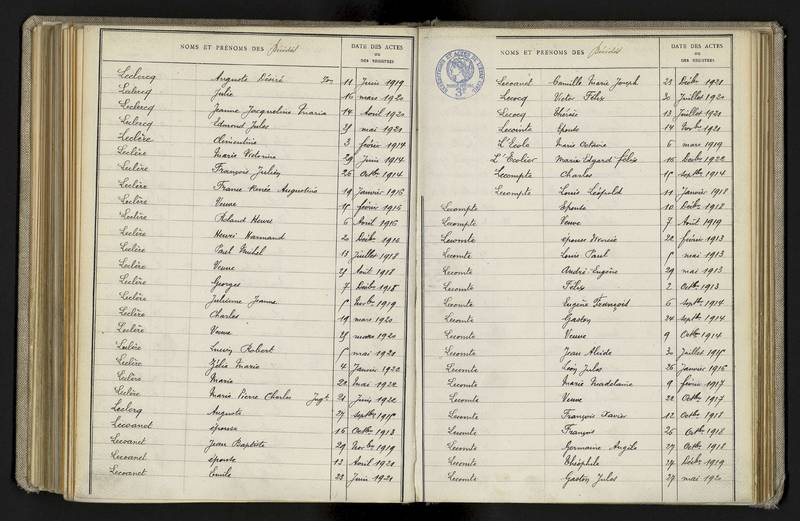 NOMS ET PRÉNOMS DES Décédés
DATE DES ACTES
OU
DES REGISTRES
Leclercq Auguste Désiré 11 Juin 1919
Leclercq Julie 16 mars 1920
Leclercq Jeanne Jacqueline Maria 14 Avril 1920
Leclercq Edmond Jules 21 mai 1920
Leclère Clémentine 3 février 1914
Leclère Marie Victorine 29 Juin 1914
Leclère François Julien 26 Octbre 1914
Leclère France Renée Augustine 19 Janvier 1916
Leclère Veuve 15 février 1916
Leclère Roland Henri 6 Avril 1916
Leclère Henri Normand 20 Décbre 1916
Leclère Paul Michel 13 Juillet 1918
Leclère Veuve 21 Août 1918
Leclère Georges 7 Décbre 1918
Leclère Julienne Jeanne 5 Novbre 1919
Leclère Charles 19 mars 1920
Leclère Veuve 25 mars 1920
Leclère Robert 5 mai 1920
Leclère Zélie Marie 4 Janvier 1922
Leclère Marie 22 Mai 1922
Leclère Marie Pierre Charles Jugt 21 Juin 1922
Leclerq Auguste 27 Septbre 1915
Lecoanet épouse 16 Octbre 1913
Lecoanet Jean Baptiste 29 Novbre 1919
Lecoanet épouse 13 Avril 1920
Lecoanet Emile 22 Juin 1920
NOMS ET PRÉNOMS DES Décédés
DATE DES ACTES
OU
DES REGISTRES
Lecoanet Camille Marie Joseph 23 Décbre 1921
Lecocq Victor Félix 30 Juillet 1920
Lecocq Thérèse 13 Juillet 1921
Lecointe Epouse 14 Novbre 1921
L'Ecole Marie Octavie 6 mars 1919
L'Ecolier Marie Edgard Félix 1922
Lecompte Charles 15 Septbre 1914
Lecompte Louis Léopold 11 Janvier 1918
Lecompte Epouse 10 Décbre 1918
Lecompte Veuve 7 Août 1919
Lecomte épouse 22 février 1913
Lecomte Louis Paul 5 mai 1913
Lecomte André Eugène 29 mai 1913
Lecomte Félix 2 Octbre 1913
Lecomte Eugène François 6 Septbre 1914
Lecomte Gaston 24 Septbre 1914
Lecomte Veuve 9 Octbre 1914
Lecomte Jean Alcide 30 Juillet 1915
Lecomte Léon Jules 26 Janvier 1916
Lecomte Marie Madeleine 9 février 1917
Lecomte Veuve 22 Octbre 1917
Lecomte François Xavier 12 Octbre 1918
Lecomte François 26 Octbre 1918
Lecomte Germaine Angèle 27 Octbre 1918
Lecomte Théophile 27 Décbre 1919
Lecomte Gaston Jules 27 mai 1920